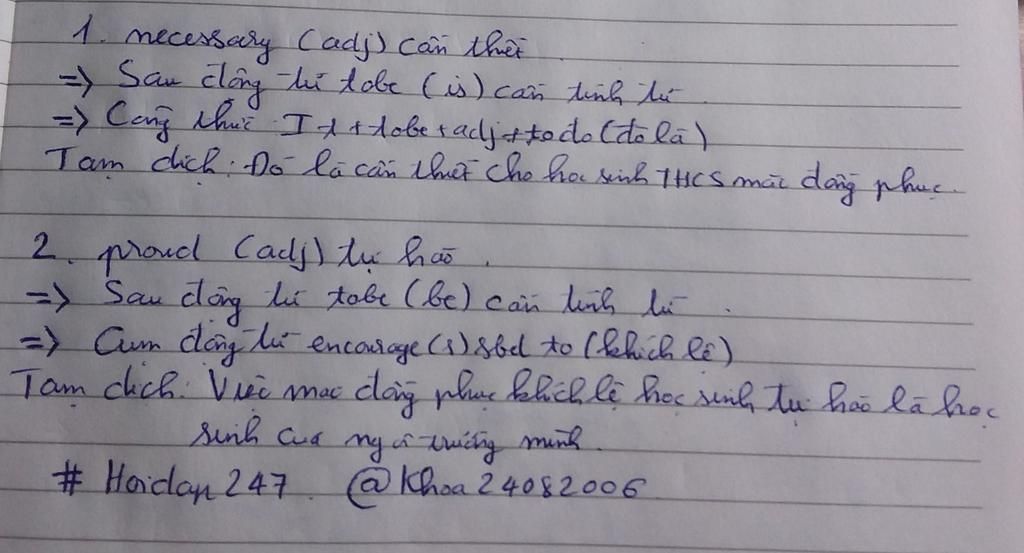 1. necessary (adj) cần thiết
=> Sau động từ tobe (is) cần tính từ
=> Công thức It + tobe + adj + to do (đó là)
Tạm dịch: Đó là cần thiết cho học sinh THCS mặc đồng phục.
2. proud (adj) tự hào.
=> Sau động từ tobe (be) cần tính từ.
=> Cụm động từ encourage(s) sbd to (khích lệ)
Tạm dịch: Việc mặc đồng phục khích lệ học sinh tự hào là học
sinh của ngôi trường mình.
# Hoidap247. @Khoa24082006